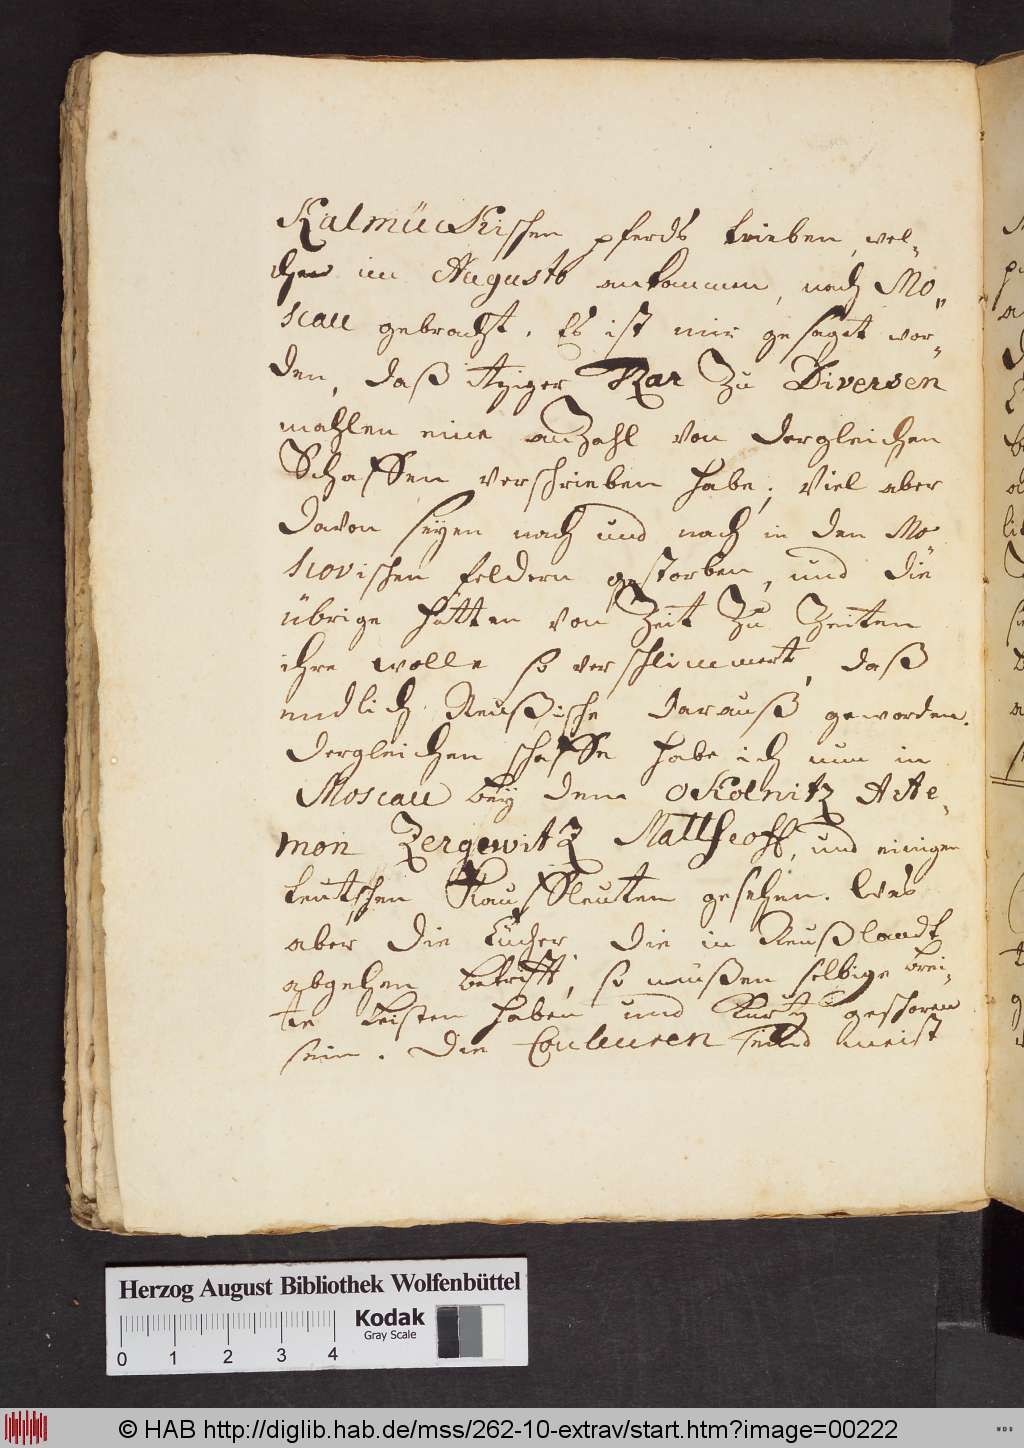 Kalmückischen pferds trieben, wel-
chen im Augusto ankommen, nach Mo-
scau gebracht. Es ist mir gesaget wor-
den, daß itziger Zar zu Diversen
mahlen eine anzahl von dergleichen
Schaffen verschrieben habe; viel aber
davon seyen nach und nach in den Mo-
scovischen feldern gestorben, und die
übrige hätten von Zeit zu Zeiten
ihre wolle so verschlimmert, daß
endlich Reußische darauß geworden.
Dergleichen schaffe habe ich nun in
Moscau bey dem Okolnitz Arte-
mon Zergewitz Mattheoff, und einigen
teutschen Kauffleuten gesehen. Was
aber die tücher, die in Reußlandt
abgehen betrifft, so müßen selbige brei-
te leisten haben und kurtz geschoren
sein. Die Couleuren seind meist
Herzog August Bibliothek Wolfenbüttel
Kodak
Gray Scale
0 1 2 3 4
© HAB http://diglib.hab.de/mss/262-10-extrav/start.htm?image=00222